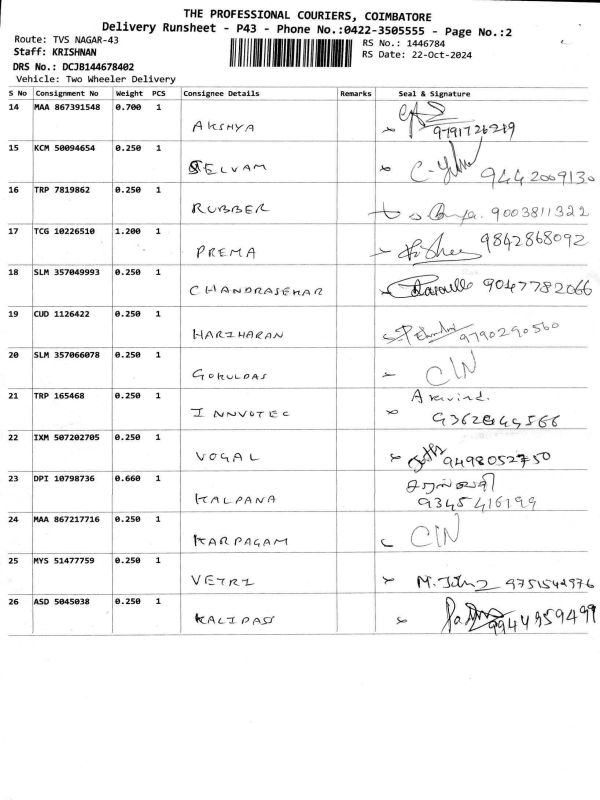 THE PROFESSIONAL COURIERS, COIMBATORE
Delivery Runsheet - P43 - Phone No.:0422-3505555 - Page No.:2
Route: TVS NAGAR-43
RS No.: 1446784
Staff: KRISHNAN
RS Date: 22-Oct-2024
DRS No.: DCJB144678402
Vehicle: Two Wheeler Delivery
S No Consignment No Weight PCS Consignee Details Remarks Seal & Signature
14 MAA 867391548 0.700 1
AKSHYA
15 KCM 50094654 0.250 1
SELVAM 9442009130
16 TRP 7819862 0.250 1
RUBBER 9003811322
17 TCG 10226510 1.200 1
PREMA 9842868092
18 SLM 357049993 0.250 1
CHANDRASEKAR 9047782066
19 CUD 1126422 0.250 1
HARIHARAN 9790290560
20 SLM 357066078 0.250 1
GOKULDAS CIN
21 TRP 165468 0.250 1 Aravind.
INNVOTEC
22 IXM 507202705 0.250 1
VOGAL 9498052750
23 DPI 10798736 0.660 1
KALPANA 9345416199
24 MAA 867217716 0.250 1
KARPAGAM CIN
25 MYS 51477759 0.250 1
VETRI M. John
26 ASD 5045038 0.250 1
KALIDASS 9944959499